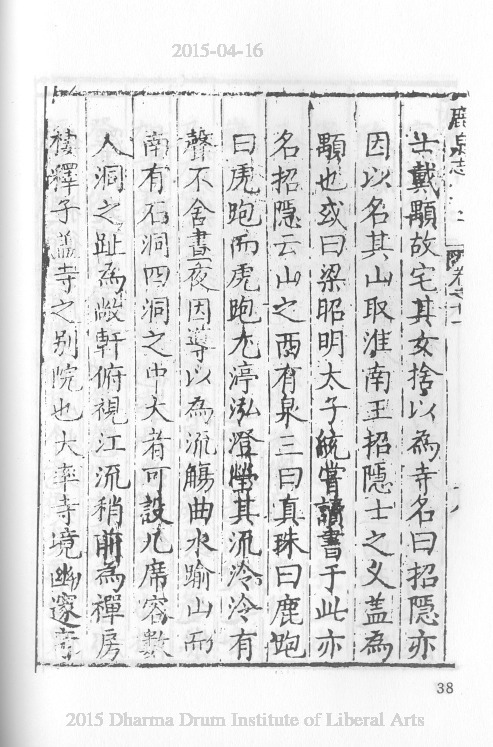 2015-04-16
鹿泉志
卷之十一
士戴顒故宅其女捨以為寺名曰招隱亦
因以名其山取淮南王招隱士之义盖為
顒也或曰梁昭明太子統嘗讀書于此亦
名招隱云山之西有泉三曰真珠曰鹿跑
曰虎跑而虎跑尤渟泓澄瑩其流泠泠有
聲不舍晝夜因導以為流觴曲水踰山而
南有石洞四洞之中大者可設几席容數
人洞之趾為敞軒俯視江流稍前為禪房
棲釋子盖寺之别院也大率寺境幽邃
38
2015 Dharma Drum Institute of Liberal Arts